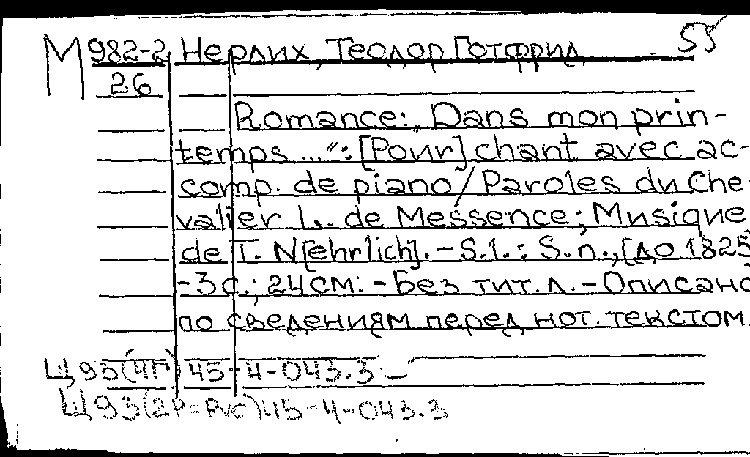 М 982-2 Нерлих, Теодор Готфрид 55
26
Romance: „Dans mon prin-
temps ...“: [Pour] chant avec ac-
comp. de piano / Paroles du Che-
valier L. de Messence; Musique
de T. N[ehrlich]. - S.l.: S.n., [до 1825
- 3 с.; 24 см. - Без тит. л. - Описано
по сведениям перед нот. текстом.
Щ95(4Г) 45-4-043.3
Щ93(2Р=Рус) 45-4-043.3